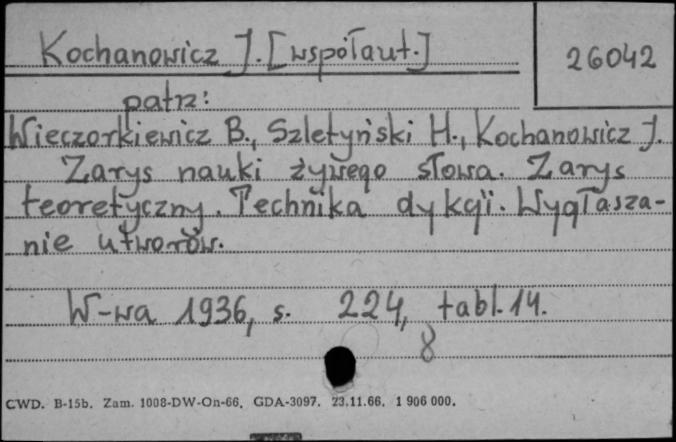 Kochanowicz J. [współaut.]
26042
patrz:
Wieczorkiewicz B., Szletyński H., Kochanowicz J.
Zarys nauki żywego słowa. Zarys
teoretyczny. Technika dykcji. Wygłasza-
nie utworów.
W-wa 1936, s. 224, tabl. 14.
8
CWD. B-15b. Zam. 1008-DW-On-66. GDA-3097. 23.11.66. 1 906 000.